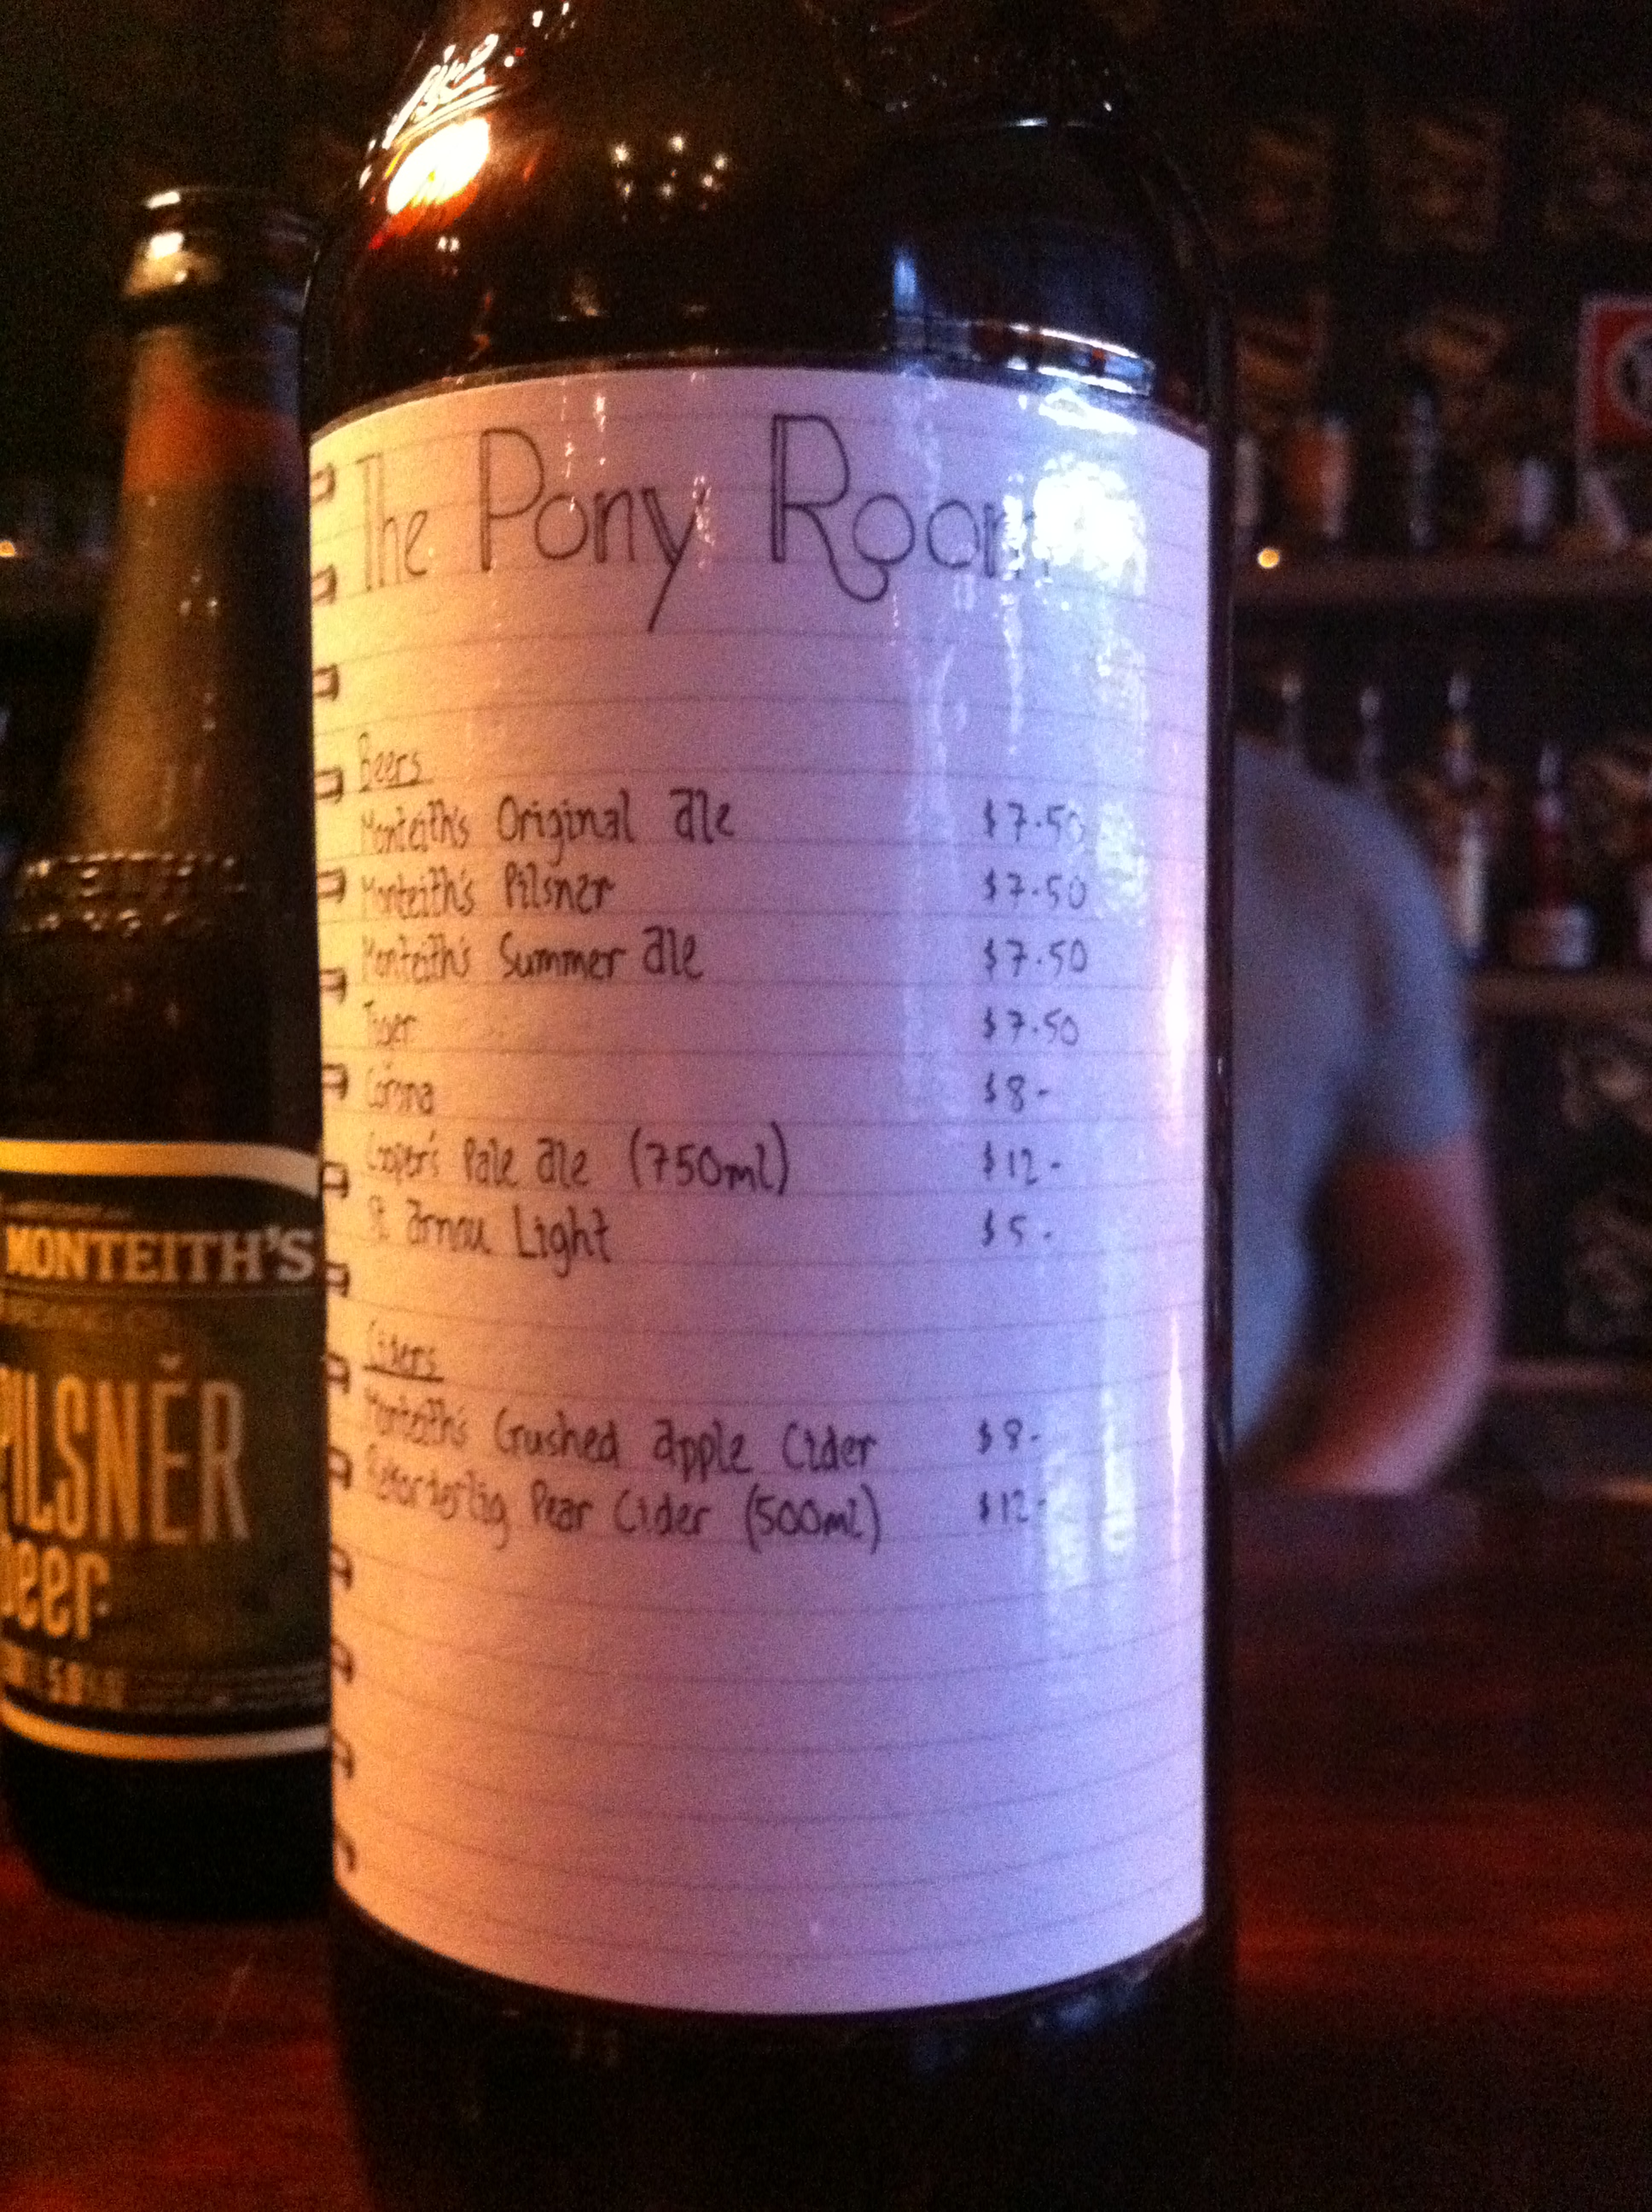 The Pony Room
Beers
Monteith's Original ale $7.50
Monteith's Pilsner $7.50
Monteith's Summer ale $7.50
Tiger $7.50
Corona $8-
Cooper's Pale ale (750ml) $12-
St. arnou Light $5-
Ciders
Monteith's Crushed apple Cider $8-
Rekorderlig Pear Cider (500ml) $12-
MONTEITH'S
BREWING CO.
PILSNĚR
beer